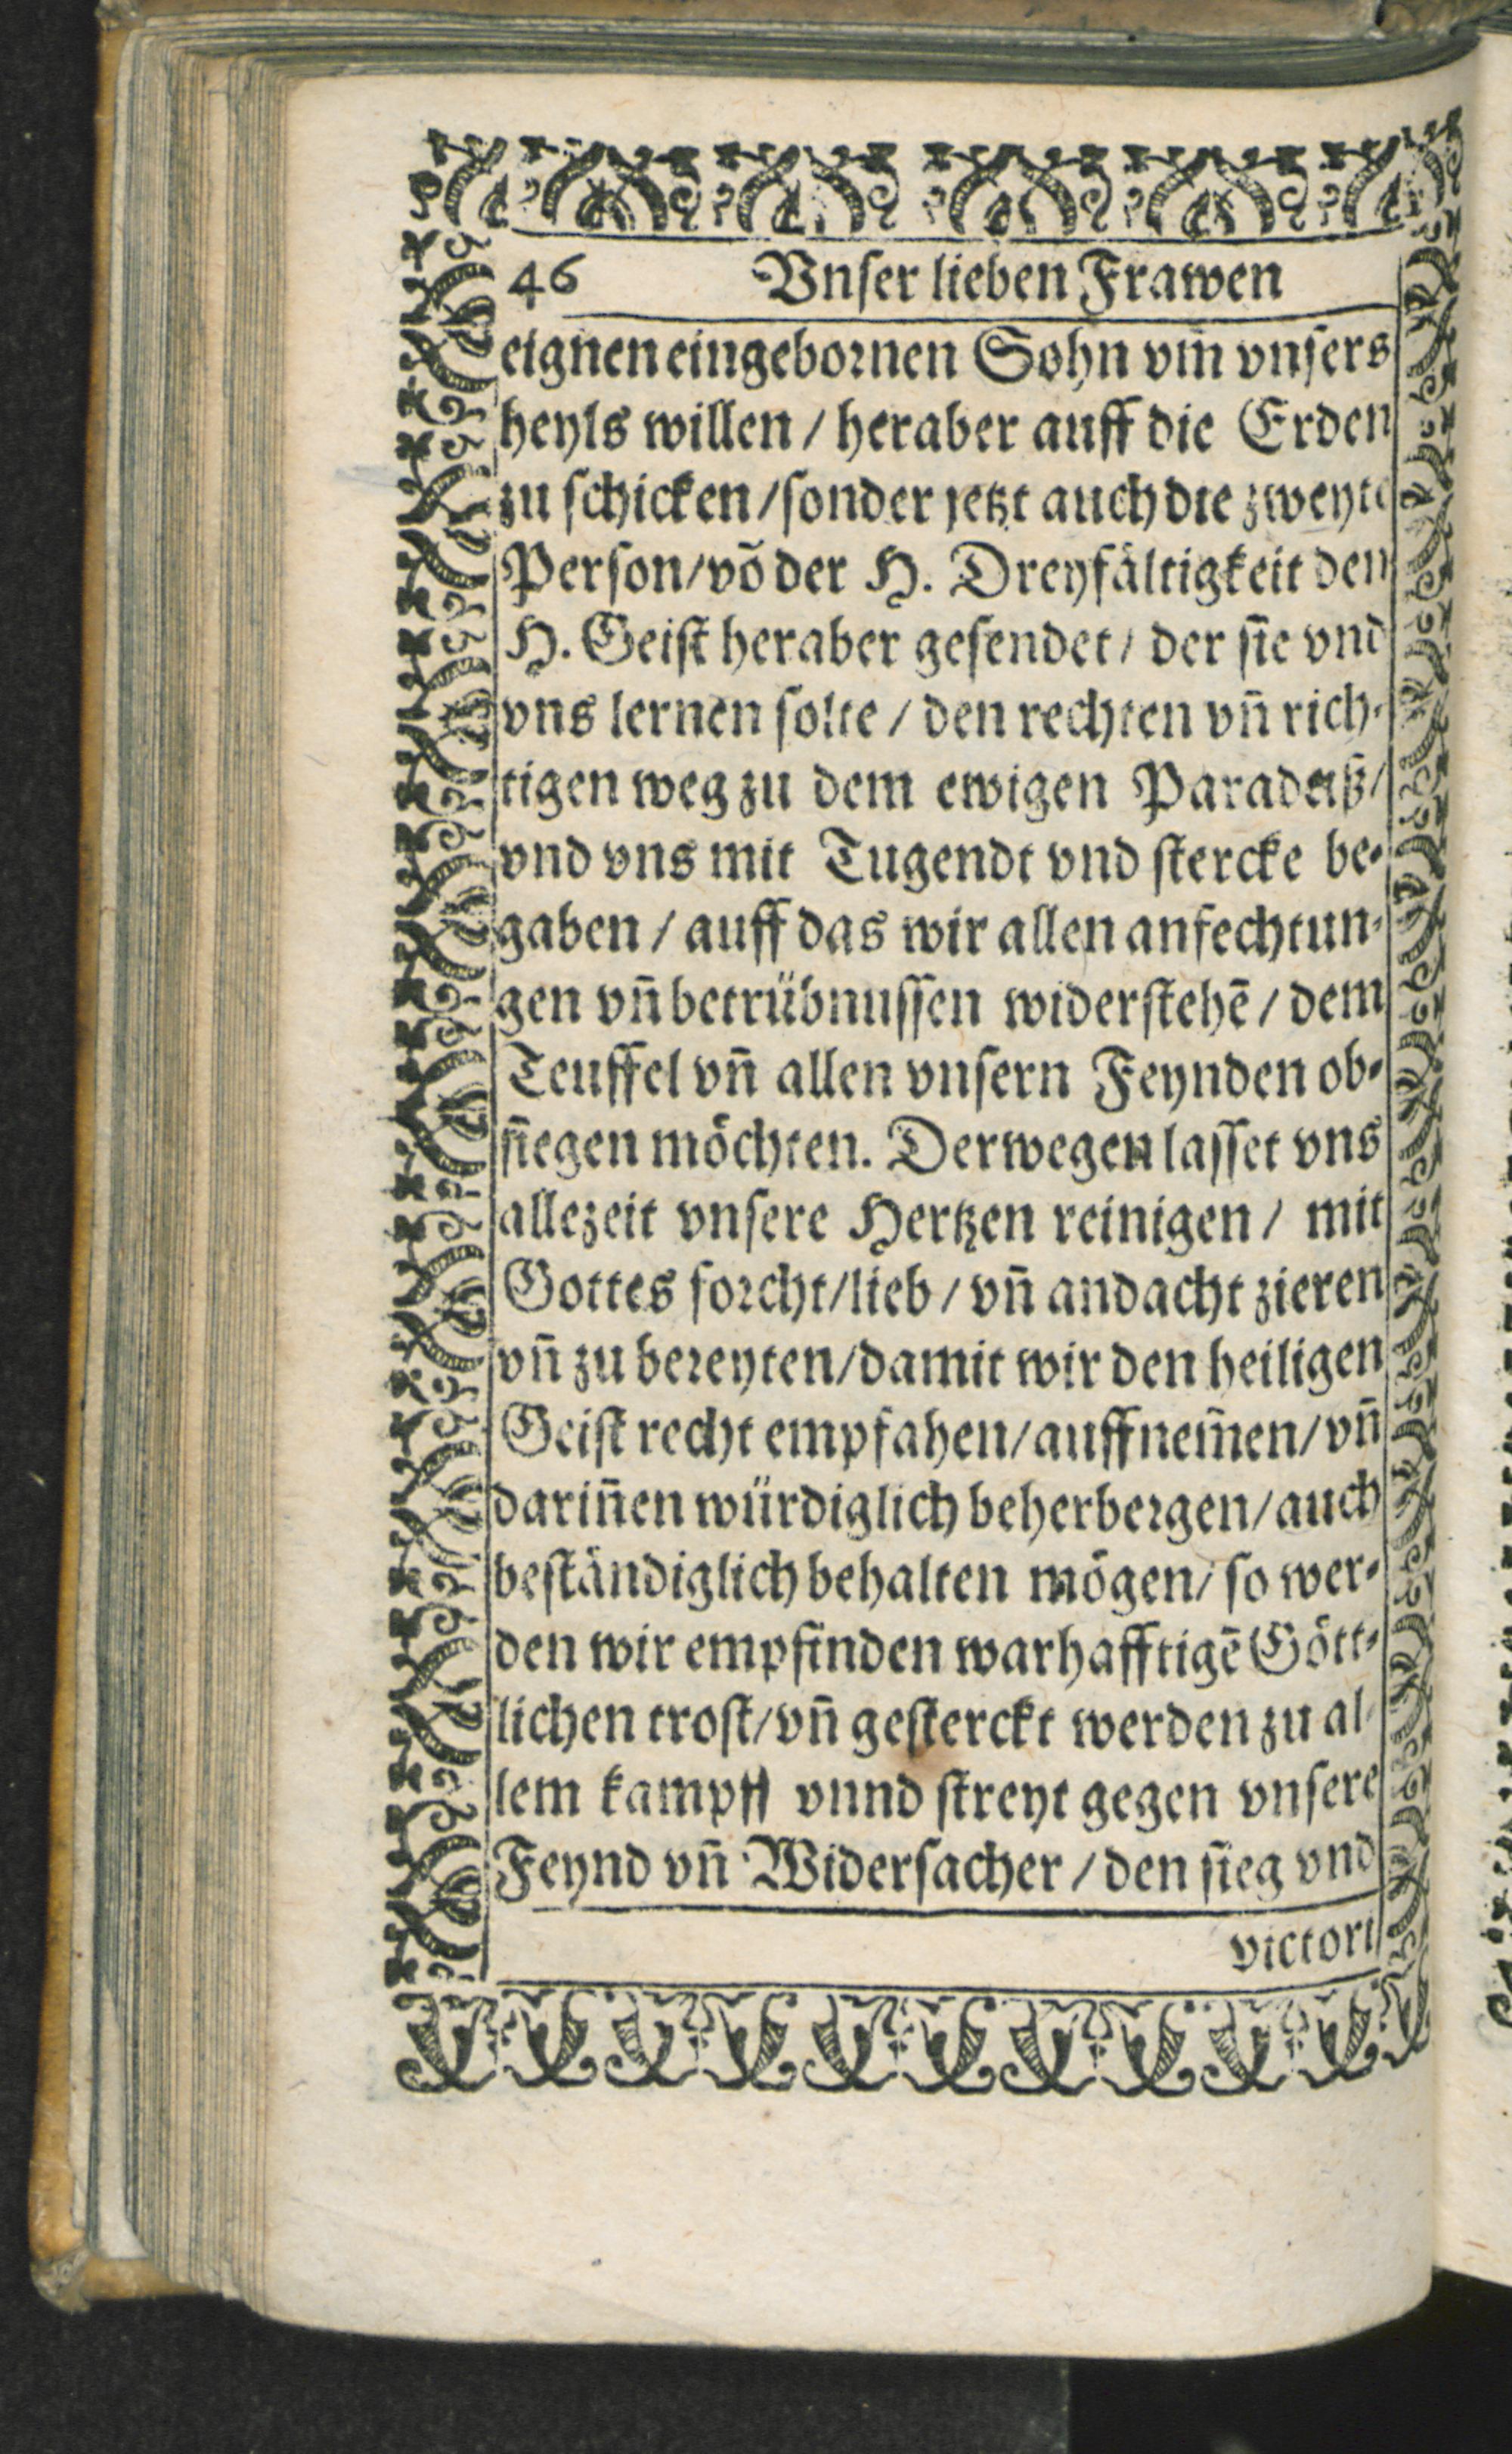 46 Vnser lieben Frawen
eignen eingebornen Sohn vm̃ vnsers
heyls willen / heraber auff die Erden
zu schicken / sonder jetzt auch die zweyte
Person / võ der H. Dreyfältigkeit den
H. Geist heraber gesendet / der sie vnd
vns lernen solte / den rechten vñ rich-
tigen weg zu dem ewigen Paradeiß /
vnd vns mit Tugendt vnd stercke be-
gaben / auff das wir allen anfechtun-
gen vñ betrübnussen widerstehē / dem
Teuffel vñ allen vnsern Feynden ob-
siegen möchten. Derwegen lasset vns
allezeit vnsere Hertzen reinigen / mit
Gottes forcht / lieb / vñ andacht zieren
vñ zu bereyten / damit wir den heiligen
Geist recht empfahen / auffnem̃en / vñ
dariñen würdiglich beherbergen / auch
beständiglich behalten mögen / so wer-
den wir empfinden warhafftigē Gött-
lichen trost / vñ gesterckt werden zu al-
lem kampff vnnd streyt gegen vnsere
Feynd vñ Widersacher / den sieg vnd
victori